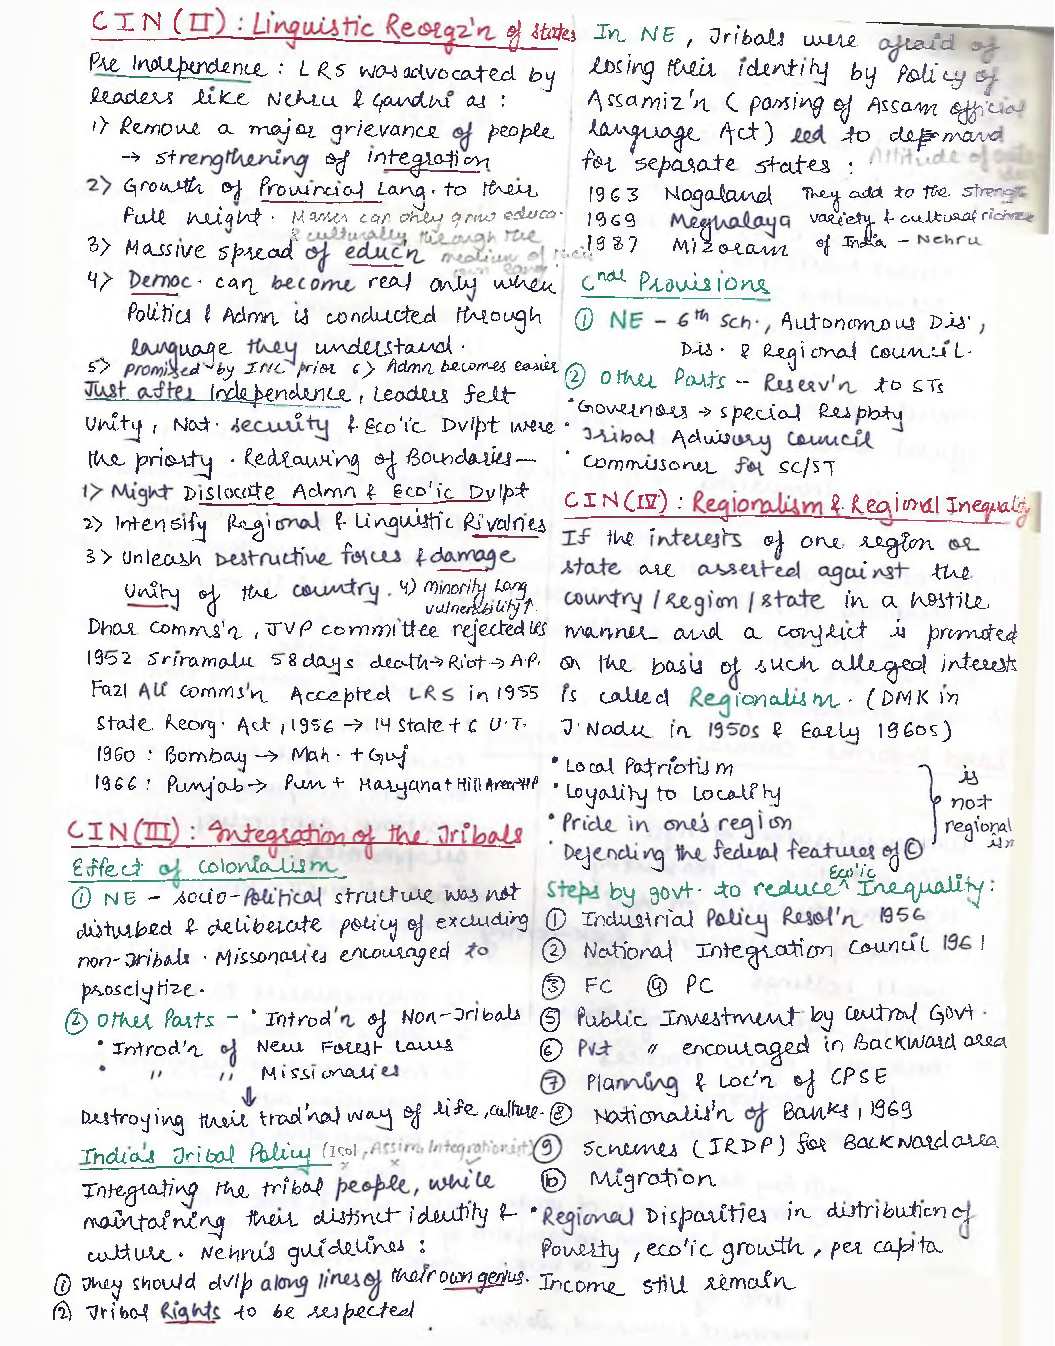 CIN (II) : Linguistic Reorgz'n of states
Pre Independence : LRS was advocated by
leaders like Nehru & Gandhi as :
1) Remove a major grievance of people
→ strengthening of integration
2) Growth of Provincial Lang. to their
full height. Masses can only grow educo.
& culturally through the
3) Massive spread of educ'n medium of their
own lang.
4) Democ. can become real only when
Politics & Admn is conducted through
language they understand.
5) promised by INC prior 6) Admn becomes easier
Just after Independence, Leaders felt
Unity, Nat. security & Eco'ic Dvlpt were
the priority. Redrawing of Boundaries—
1) Might Dislocate Admn & Eco'ic Dvlpt
2) Intensify Regional & Linguistic Rivalries
3) Unleash Destructive forces & damage
Unity of the country. 4) Minority Lang
vulnerability↑.
Dhar Comms'n, JVP committee rejected LRS
1952 Sriramalu 58 days death→Riot→A.P.
Fazl Ali comms'n Accepted LRS in 1955
State Reorg. Act, 1956 → 14 State + 6 U.T.
1960 : Bombay → Mah. + Guj
1966 : Punjab → Pun + Haryana + Hill Area→HP
CIN (III) : Integration of the Tribals
Effect of colonialism
① NE - socio-Political structure was not
disturbed & deliberate policy of excluding
non-Tribals. Missonaries encouraged to
proselytize.
② Other Parts - • Introd'n of Non-Tribals
• Introd'n of New Forest Laws
• " " Missionaries
↓
Destroying their trad'nal way of life, culture.
India's Tribal Policy (Isol, Assim, Integrationist)
Integrating the tribal people, while
maintaining their distinct identity &
culture. Nehru's guidelines :
① They should dvlp along lines of their own genius.
② Tribal Rights to be respected
In NE, Tribals were afraid of
losing their identity by Policy of
Assamiz'n (passing of Assam official
language Act) led to demand
for separate states : Attitude of
1963 Nagaland They add to the strength
1969 Meghalaya variety & cultural richness
1987 Mizoram of India - Nehru
Cnal Provisions
① NE - 6th Sch., Autonomous Dis',
Dis. & Regional council.
② Other Parts -- Reserv'n to STs
• Governors → special Respbty
• Tribal Advisory council
• Commissoner for SC/ST
CIN (IV) : Regionalism & Regional Inequality
If the interests of one region or
state are asserted against the
country/region/state in a hostile
manner and a conflict is promoted
on the basis of such alleged interests
is called Regionalism. (DMK in
T'Nadu in 1950s & Early 1960s)
• Local Patriotism
• Loyality to Locality
• Pride in one's region
• Defending the federal features of ©
} is not regionalism
Steps by govt. to reduce ^Eco'ic Inequality :
① Industrial Policy Resol'n 1956
② National Integration Council 1961
③ FC ④ PC
⑤ Public Investment by Central Govt.
⑥ Pvt " encouraged in Backward area
⑦ Planning & Loc'n of CPSE
⑧ Nationalis'n of Banks, 1969
⑨ Schemes (IRDP) for Backward area
⑩ Migration
• Regional Disparities in distribution of
Poverty, eco'ic growth, per capita
Income still remain